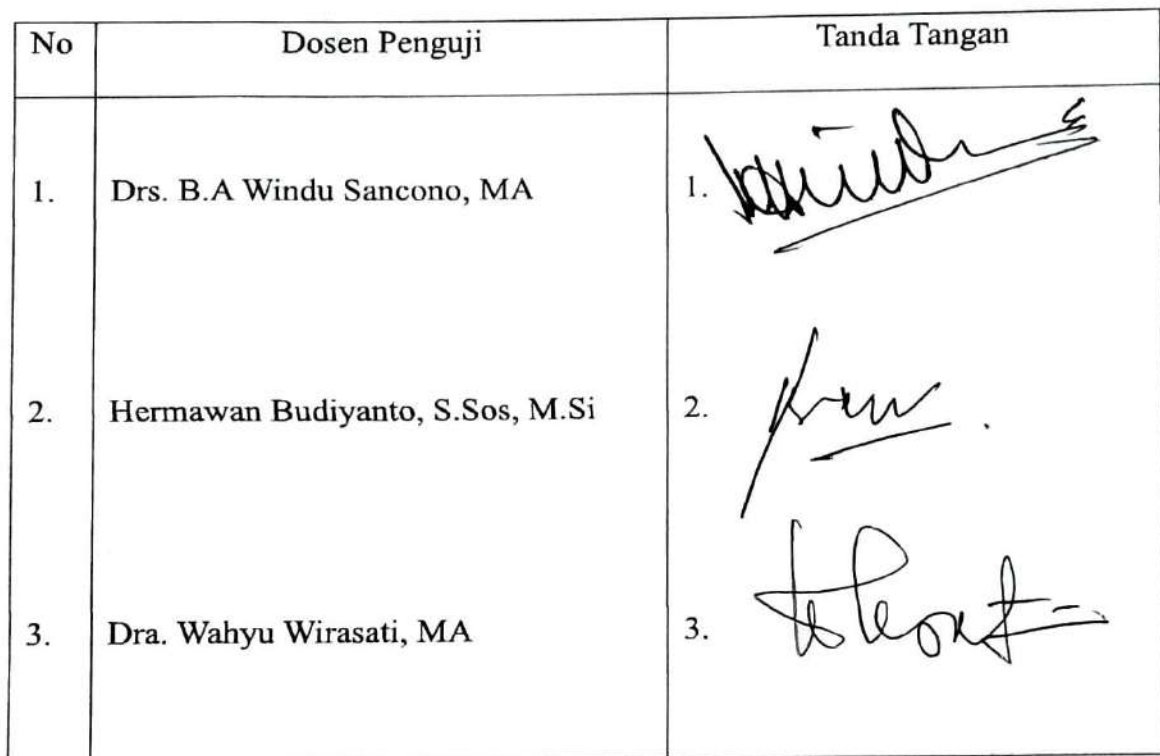 No Dosen Penguji Tanda Tangan
1. Drs. B.A Windu Sancono, MA 1.
2. Hermawan Budiyanto, S.Sos, M.Si 2.
3. Dra. Wahyu Wirasati, MA 3.